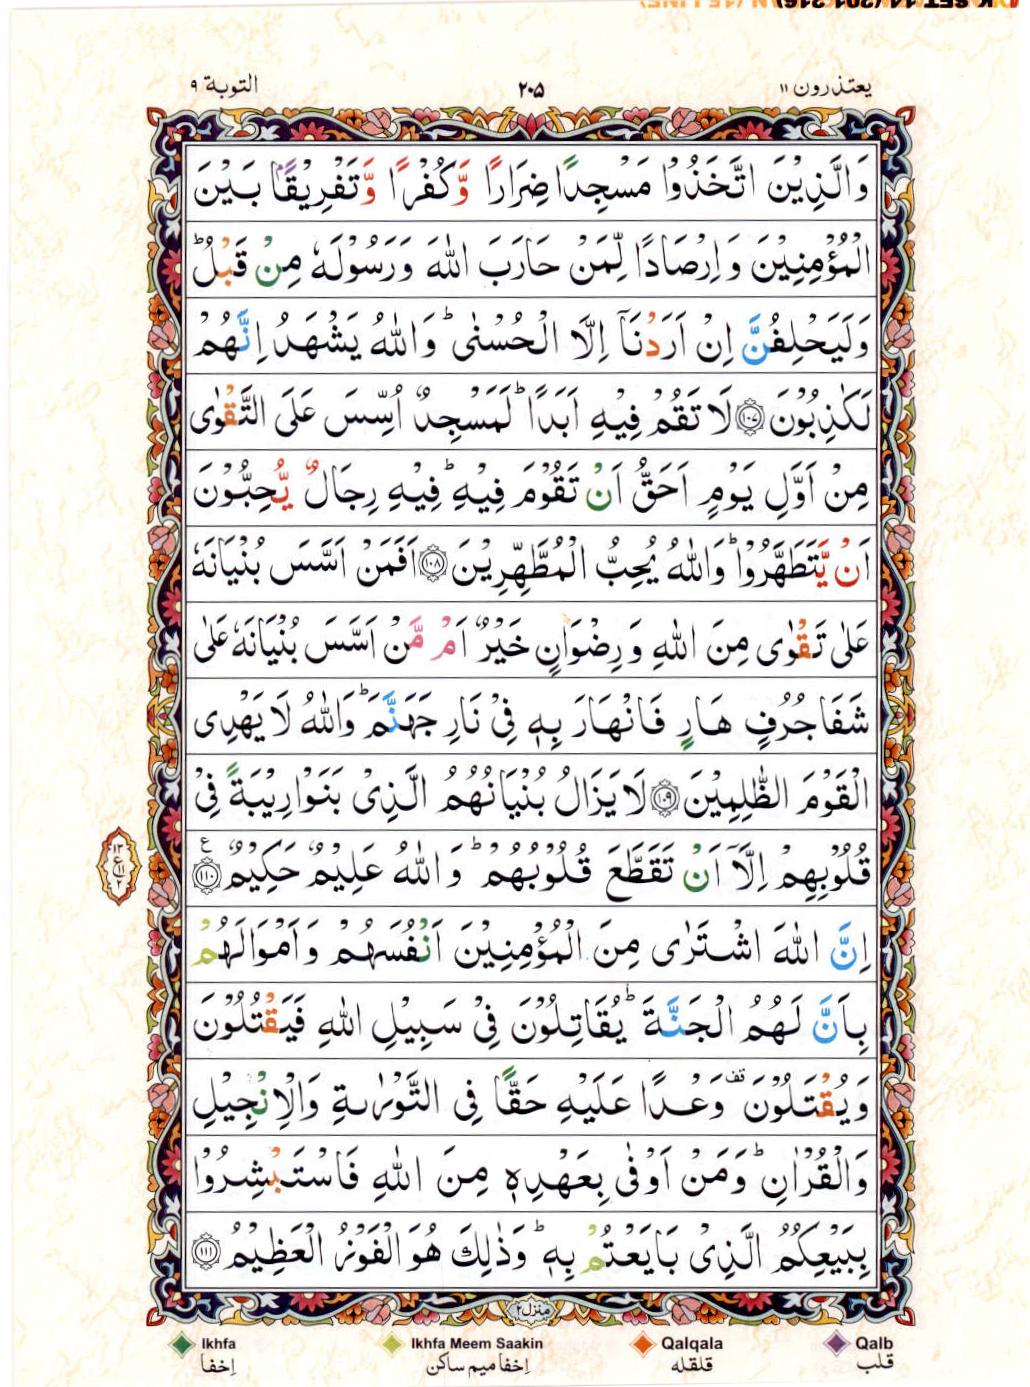 يعتذرون ١١
٢٠٥
التوبة ٩
وَالَّذِيْنَ اتَّخَذُوْا مَسْجِدًا ضِرَارًا وَّكُفْرًا وَّتَفْرِيْقًاۢ بَيْنَ
الْمُؤْمِنِيْنَ وَاِرْصَادًا لِّمَنْ حَارَبَ اللّٰهَ وَرَسُوْلَهٗ مِنْ قَبْلُ ؕ
وَلَيَحْلِفُنَّ اِنْ اَرَدْنَاۤ اِلَّا الْحُسْنٰى ؕ وَاللّٰهُ يَشْهَدُ اِنَّهُمْ
لَكٰذِبُوْنَ ﴿١٠٧﴾ لَا تَقُمْ فِيْهِ اَبَدًا ؕ لَمَسْجِدٌ اُسِّسَ عَلَى التَّقْوٰى
مِنْ اَوَّلِ يَوْمٍ اَحَقُّ اَنْ تَقُوْمَ فِيْهِ ؕ فِيْهِ رِجَالٌ يُّحِبُّوْنَ
اَنْ يَّتَطَهَّرُوْا ؕ وَاللّٰهُ يُحِبُّ الْمُطَّهِّرِيْنَ ﴿١٠٨﴾ اَفَمَنْ اَسَّسَ بُنْيَانَهٗ
عَلٰى تَقْوٰى مِنَ اللّٰهِ وَرِضْوَانٍ خَيْرٌ اَمْ مَّنْ اَسَّسَ بُنْيَانَهٗ عَلٰى
شَفَا جُرُفٍ هَارٍ فَانْهَارَ بِهٖ فِيْ نَارِ جَهَنَّمَ ؕ وَاللّٰهُ لَا يَهْدِى
الْقَوْمَ الظّٰلِمِيْنَ ﴿١٠٩﴾ لَا يَزَالُ بُنْيَانُهُمُ الَّذِيْ بَنَوْا رِيْبَةً فِيْ
قُلُوْبِهِمْ اِلَّاۤ اَنْ تَقَطَّعَ قُلُوْبُهُمْ ؕ وَاللّٰهُ عَلِيْمٌ حَكِيْمٌ ﴿١١٠﴾ ع
١٣
ع
١١
٢
اِنَّ اللّٰهَ اشْتَرٰى مِنَ الْمُؤْمِنِيْنَ اَنْفُسَهُمْ وَاَمْوَالَهُمْ
بِاَنَّ لَهُمُ الْجَنَّةَ ؕ يُقَاتِلُوْنَ فِيْ سَبِيْلِ اللّٰهِ فَيَقْتُلُوْنَ
وَيُقْتَلُوْنَ قف وَعْدًا عَلَيْهِ حَقًّا فِى التَّوْرٰىةِ وَالْاِنْجِيْلِ
وَالْقُرْاٰنِ ؕ وَمَنْ اَوْفٰى بِعَهْدِهٖ مِنَ اللّٰهِ فَاسْتَبْشِرُوْا
بِبَيْعِكُمُ الَّذِيْ بَايَعْتُمْ بِهٖ ؕ وَذٰلِكَ هُوَ الْفَوْزُ الْعَظِيْمُ ﴿١١١﴾
منزل ٢
Ikhfa
اِخفا
Ikhfa Meem Saakin
اِخفا ميم ساكن
Qalqala
قلقله
Qalb
قلب